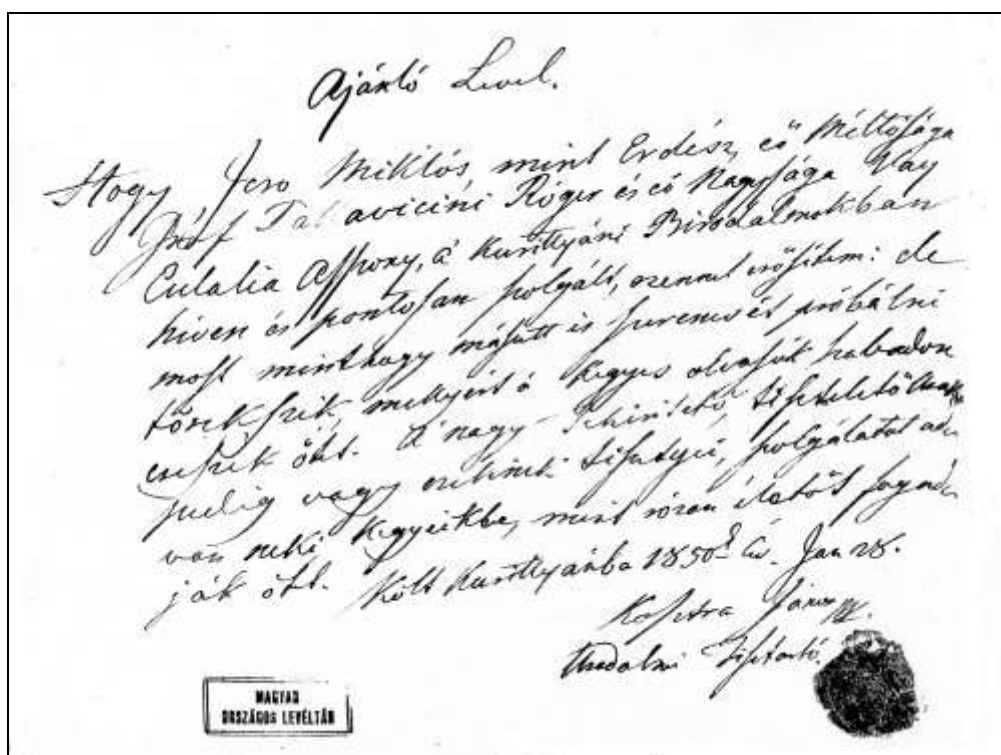 Ajánló Level.
Hogy Jcso Miklós, mint Erdész, eő Méltósága
Gróf Pallavicini Róger és eő Nagysága Vay
Eulalia Asszony, a' Kurittyáni Birodalmokban
hiven és pontosan szolgált, ezennel erősitem: de
most minthogy másutt is szerencsét próbálni
törekszik, mellyért a' kegyes olvasók szabadon
eresszék őtet. A' nagy
pedig vagy tisztyei, szolgálatot
van neki kegyeikbe, mint józan életűt fogad
ják őtet. Költ Kurittyánba 1850 Jan 28.
János
Uradalmi Tisztartó.
MAGYAR
ORSZÁGOS LEVÉLTÁR